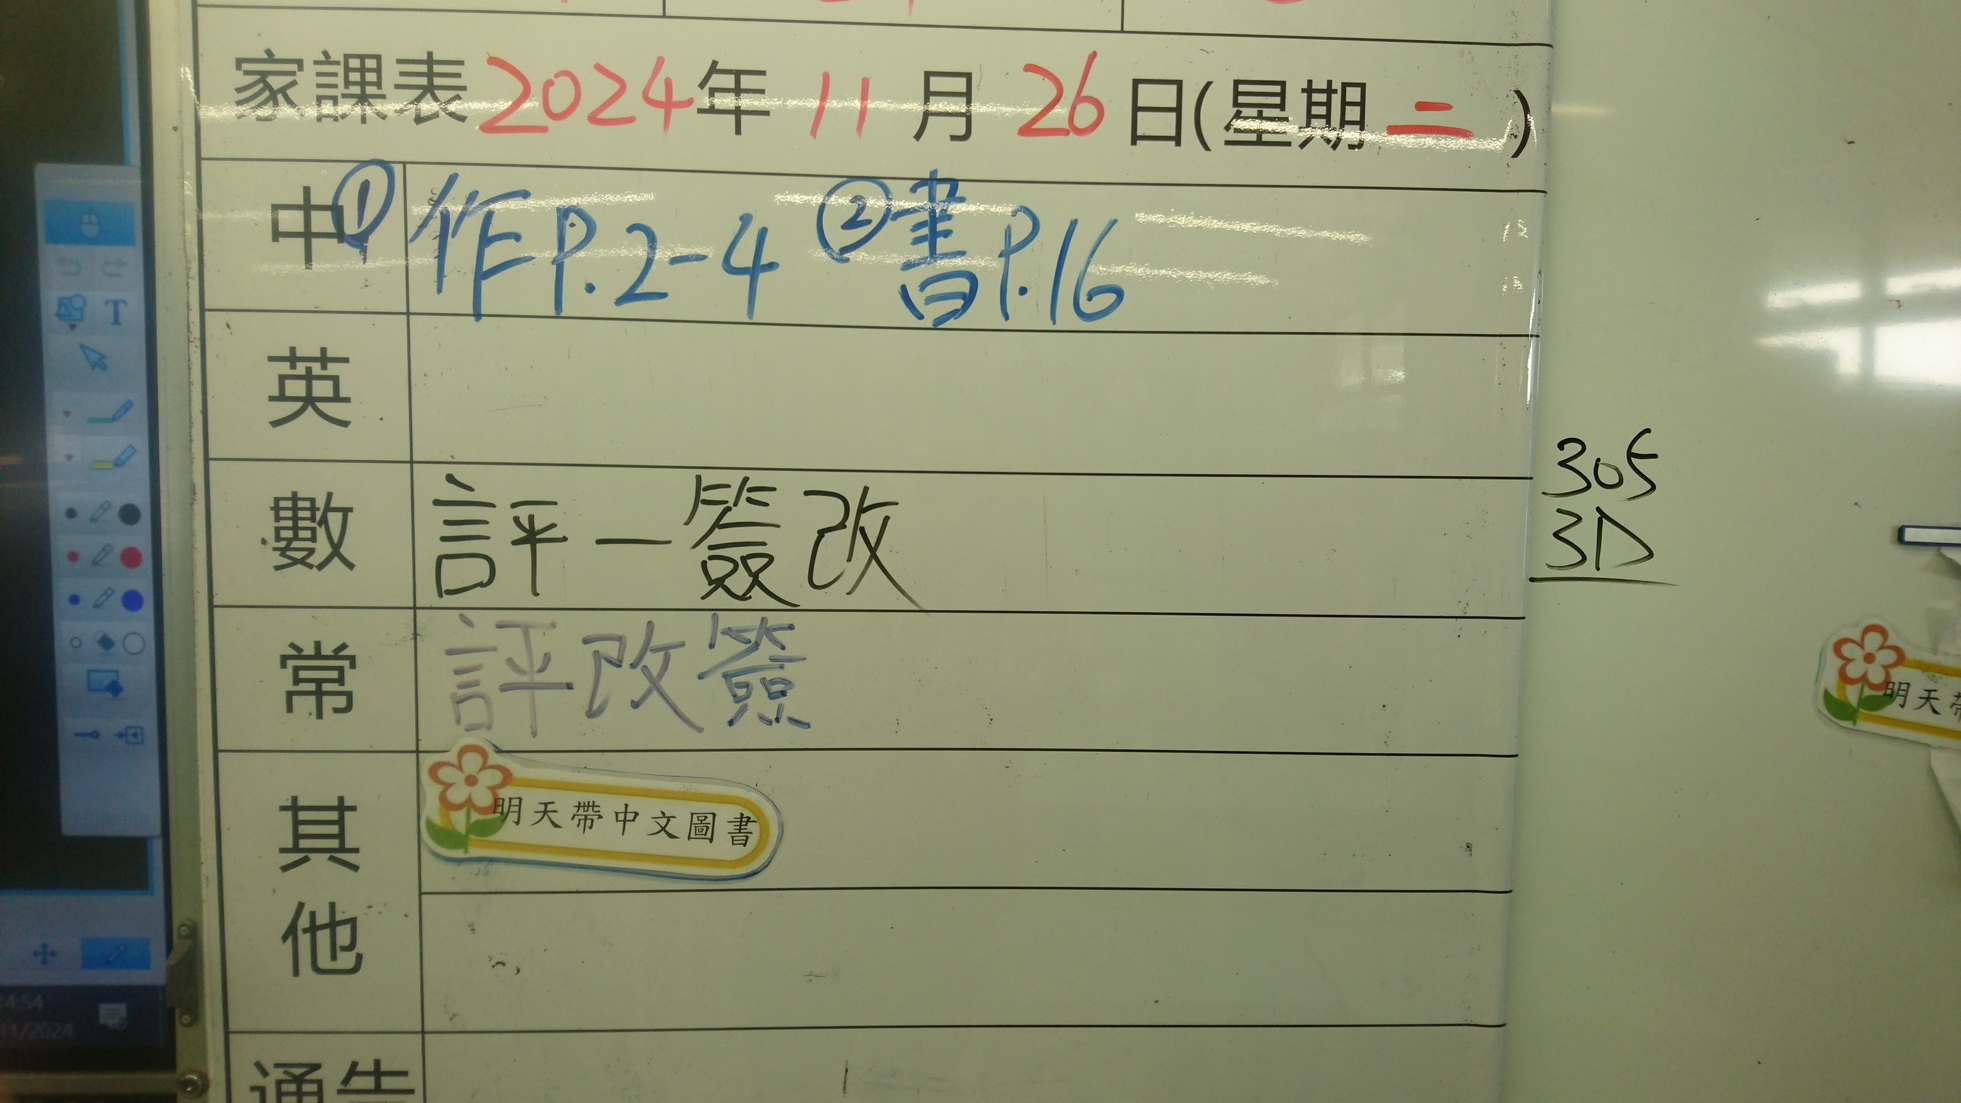 家課表2024年 11 月 26 日(星期 二 )
中 ①作P.2-4 ②書P.16
英
數 評一簽改
305
3D
常 評改簽
其他 明天帶中文圖書
明天
通告
T
4:54
11/2024